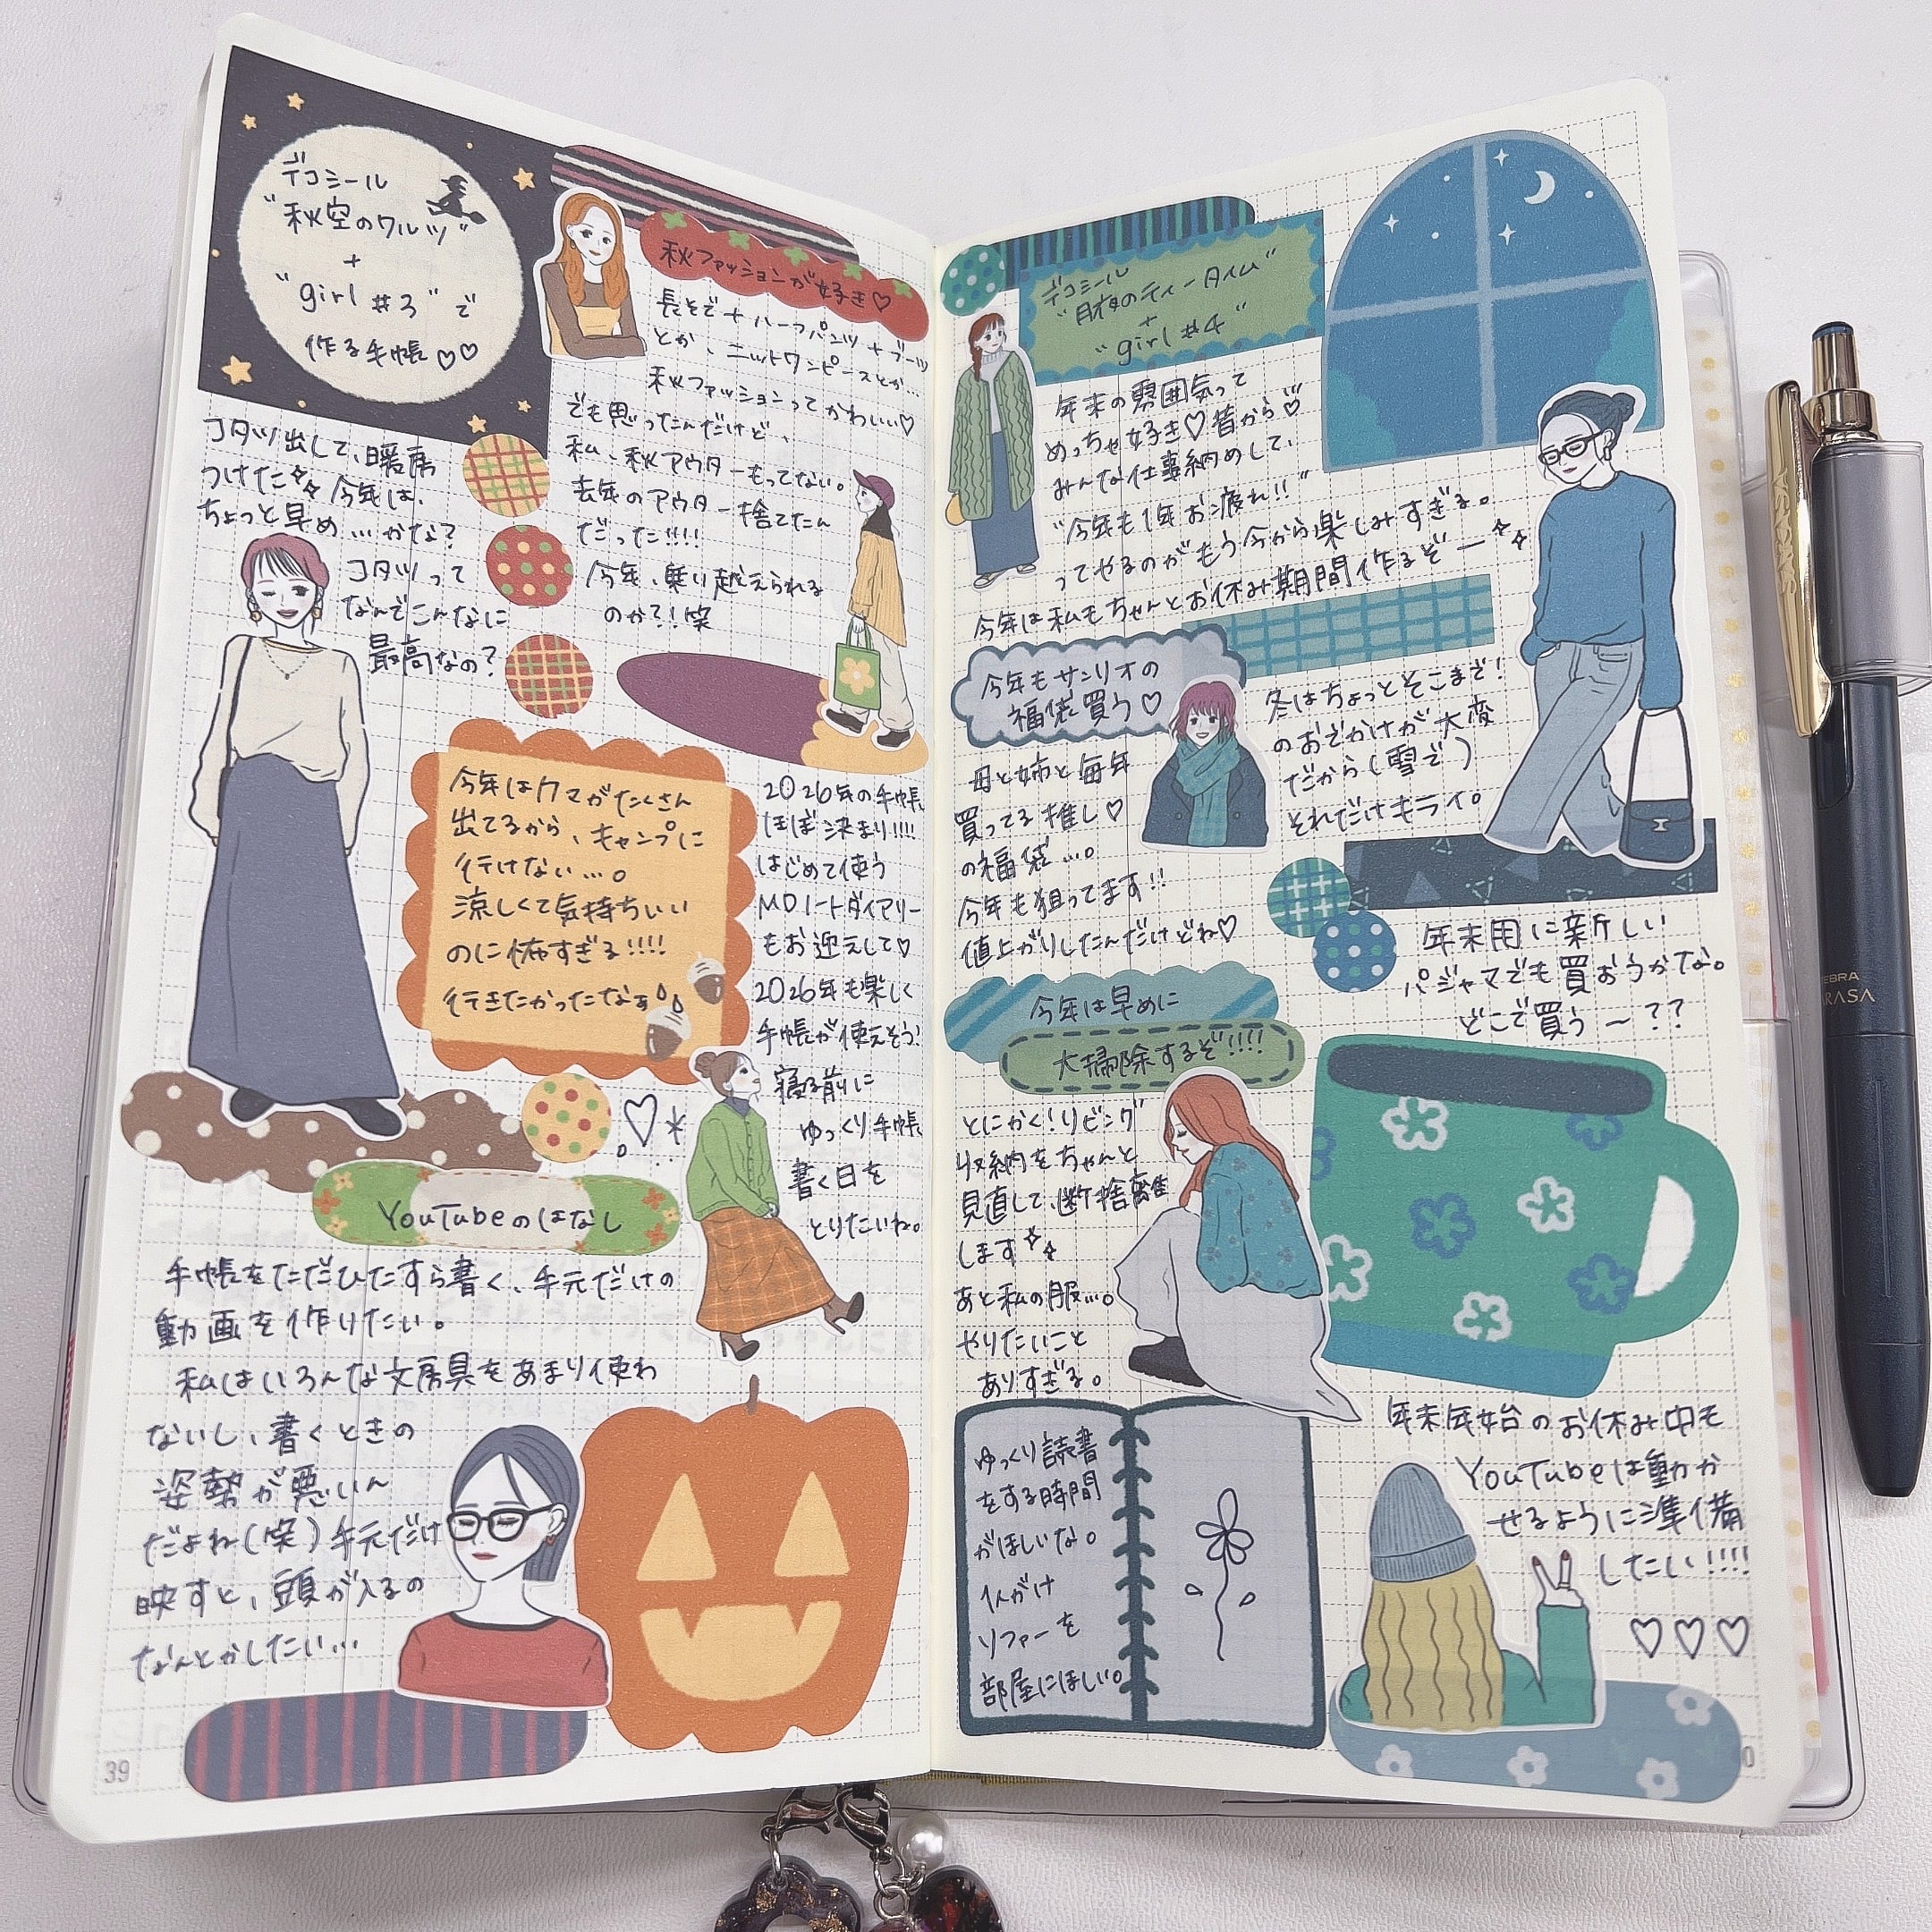 デコシール
"秋空のワルツ"
+
"girl #3"で
作る手帳♡♡
秋ファッションが好き♡
長そで+ハーフパンツ+ブーツ
とか、ニットワンピースとか…
秋ファッションってかわいい♡
でも思ったんだけど、
私、秋アウターもってない。
去年のアウター捨てたん
だった!!!!
今年、乗り越えられる
のか?!笑
コタツ出して、暖房
つけた 今年は、
ちょっと早め…かな?
コタツって
なんでこんなに
最高なの?
今年はクマがたくさん
出てるから、キャンプに
行けない…。
涼しくて気持ちいい
のに怖すぎる!!!!
行きたかったなぁ
2026年の手帳
ほぼ決まり!!!!
はじめて使う
MDノートダイアリー
もお迎えして♡
2026年も楽しく
手帳が使えそう!
寝る前に
ゆっくり手帳
書く日を
とりたいね。
YouTubeのはなし
手帳をただひたすら書く、手元だけの
動画を作りたい。
私はいろんな文房具をあまり使わ
ないし、書くときの
姿勢が悪いん
だよね(笑)手元だけ
映すと、頭が入るの
なんとかしたい…
39
デコシール
"月夜のティータイム"
+
"girl #4"
年末の雰囲気って
めっちゃ好き♡昔から♡
みんな仕事納めして、
"今年も1年お疲れ!!"
ってやるのがもう今から楽しみすぎる。
今年は私もちゃんとお休み期間作るぞー
今年もサンリオの
福袋買う♡
母と姉と毎年
買ってる推し♡
の福袋…。
今年も狙ってます!!
値上がりしたんだけどね♡
冬はちょっとそこまで!
のおでかけが大変
だから(雪で)
それだけキライ。
年末用に新しい
パジャマでも買おうかな。
どこで買う〜??
今年は早めに
大掃除するぞ!!!!
とにかく!リビング
収納をちゃんと
見直して、断捨離
します
あと私の服…。
やりたいこと
ありすぎる。
ゆっくり読書
をする時間
がほしいな。
1人がけ
ソファーを
部屋にほしい。
年末年始のお休み中も
YouTubeは動か
せるように準備
したい!!!!
♡♡♡
ZEBRA
SARASA